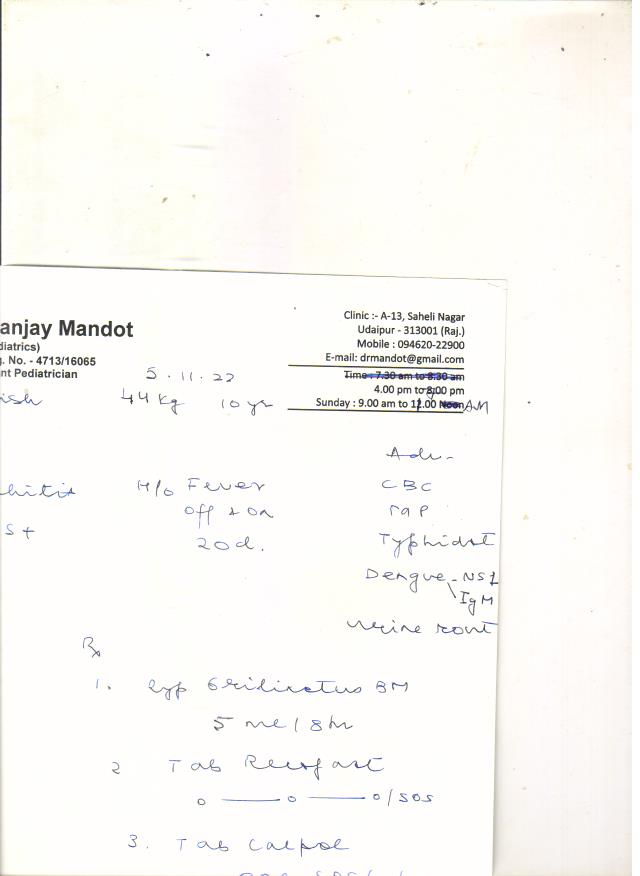 anjay Mandot
diatrics)
. No. - 4713/16065
nt Pediatrician
Clinic :- A-13, Saheli Nagar
Udaipur - 313001 (Raj.)
Mobile : 094620-22900
E-mail: drmandot@gmail.com
Time : 7.30 am to 8.30 am
4.00 pm to 8.00 pm
Sunday : 9.00 am to 11.00 Noon AM
5.11.22
ish 44 kg 10 yr
Adv-
hitis H/o Fever CBC
S+ off & on
20d. Typhidot
Dengue - NS1
IgM
urine rout
Rx
1. Syp BM
5 ml / 8 hr
2 Tab
o — o — o / SOS
3. Tab Calpol